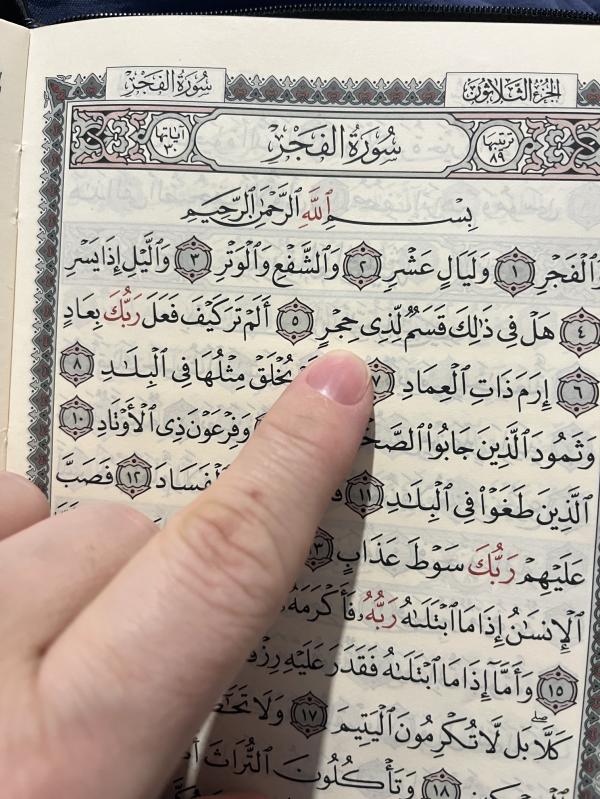 سُورَةُ الفَجْرِ الجُزءُ الثَّلَاثُونَ
ترتيبها ٨٩ سُورَةُ الفَجْرِ آياتها ٣٠
بِسْمِ ٱللَّهِ ٱلرَّحْمَٰنِ ٱلرَّحِيمِ
وَٱلْفَجْرِ ١ وَلَيَالٍ عَشْرٍ ٢ وَٱلشَّفْعِ وَٱلْوَتْرِ ٣ وَٱلَّيْلِ إِذَا يَسْرِ
٤ هَلْ فِى ذَٰلِكَ قَسَمٌ لِّذِى حِجْرٍ ٥ أَلَمْ تَرَ كَيْفَ فَعَلَ رَبُّكَ بِعَادٍ
٦ إِرَمَ ذَاتِ ٱلْعِمَادِ ٧ يُخْلَقْ مِثْلُهَا فِى ٱلْبِلَٰدِ ٨
وَثَمُودَ ٱلَّذِينَ جَابُوا۟ وَفِرْعَوْنَ ذِى ٱلْأَوْتَادِ ١٠
ٱلَّذِينَ طَغَوْا۟ فِى ٱلْبِلَٰدِ ١١ ٱلْفَسَادَ ١٢ فَصَبَّ
عَلَيْهِمْ رَبُّكَ سَوْطَ عَذَابٍ ١٣
ٱلْإِنسَٰنُ إِذَا مَا ٱبْتَلَىٰهُ رَبُّهُۥ فَأَكْرَمَهُۥ
١٥ وَأَمَّآ إِذَا مَا ٱبْتَلَىٰهُ فَقَدَرَ عَلَيْهِ
كَلَّا ۖ بَل لَّا تُكْرِمُونَ ٱلْيَتِيمَ ١٧ وَلَا
١٨ وَتَأْكُلُونَ ٱلتُّرَاثَ